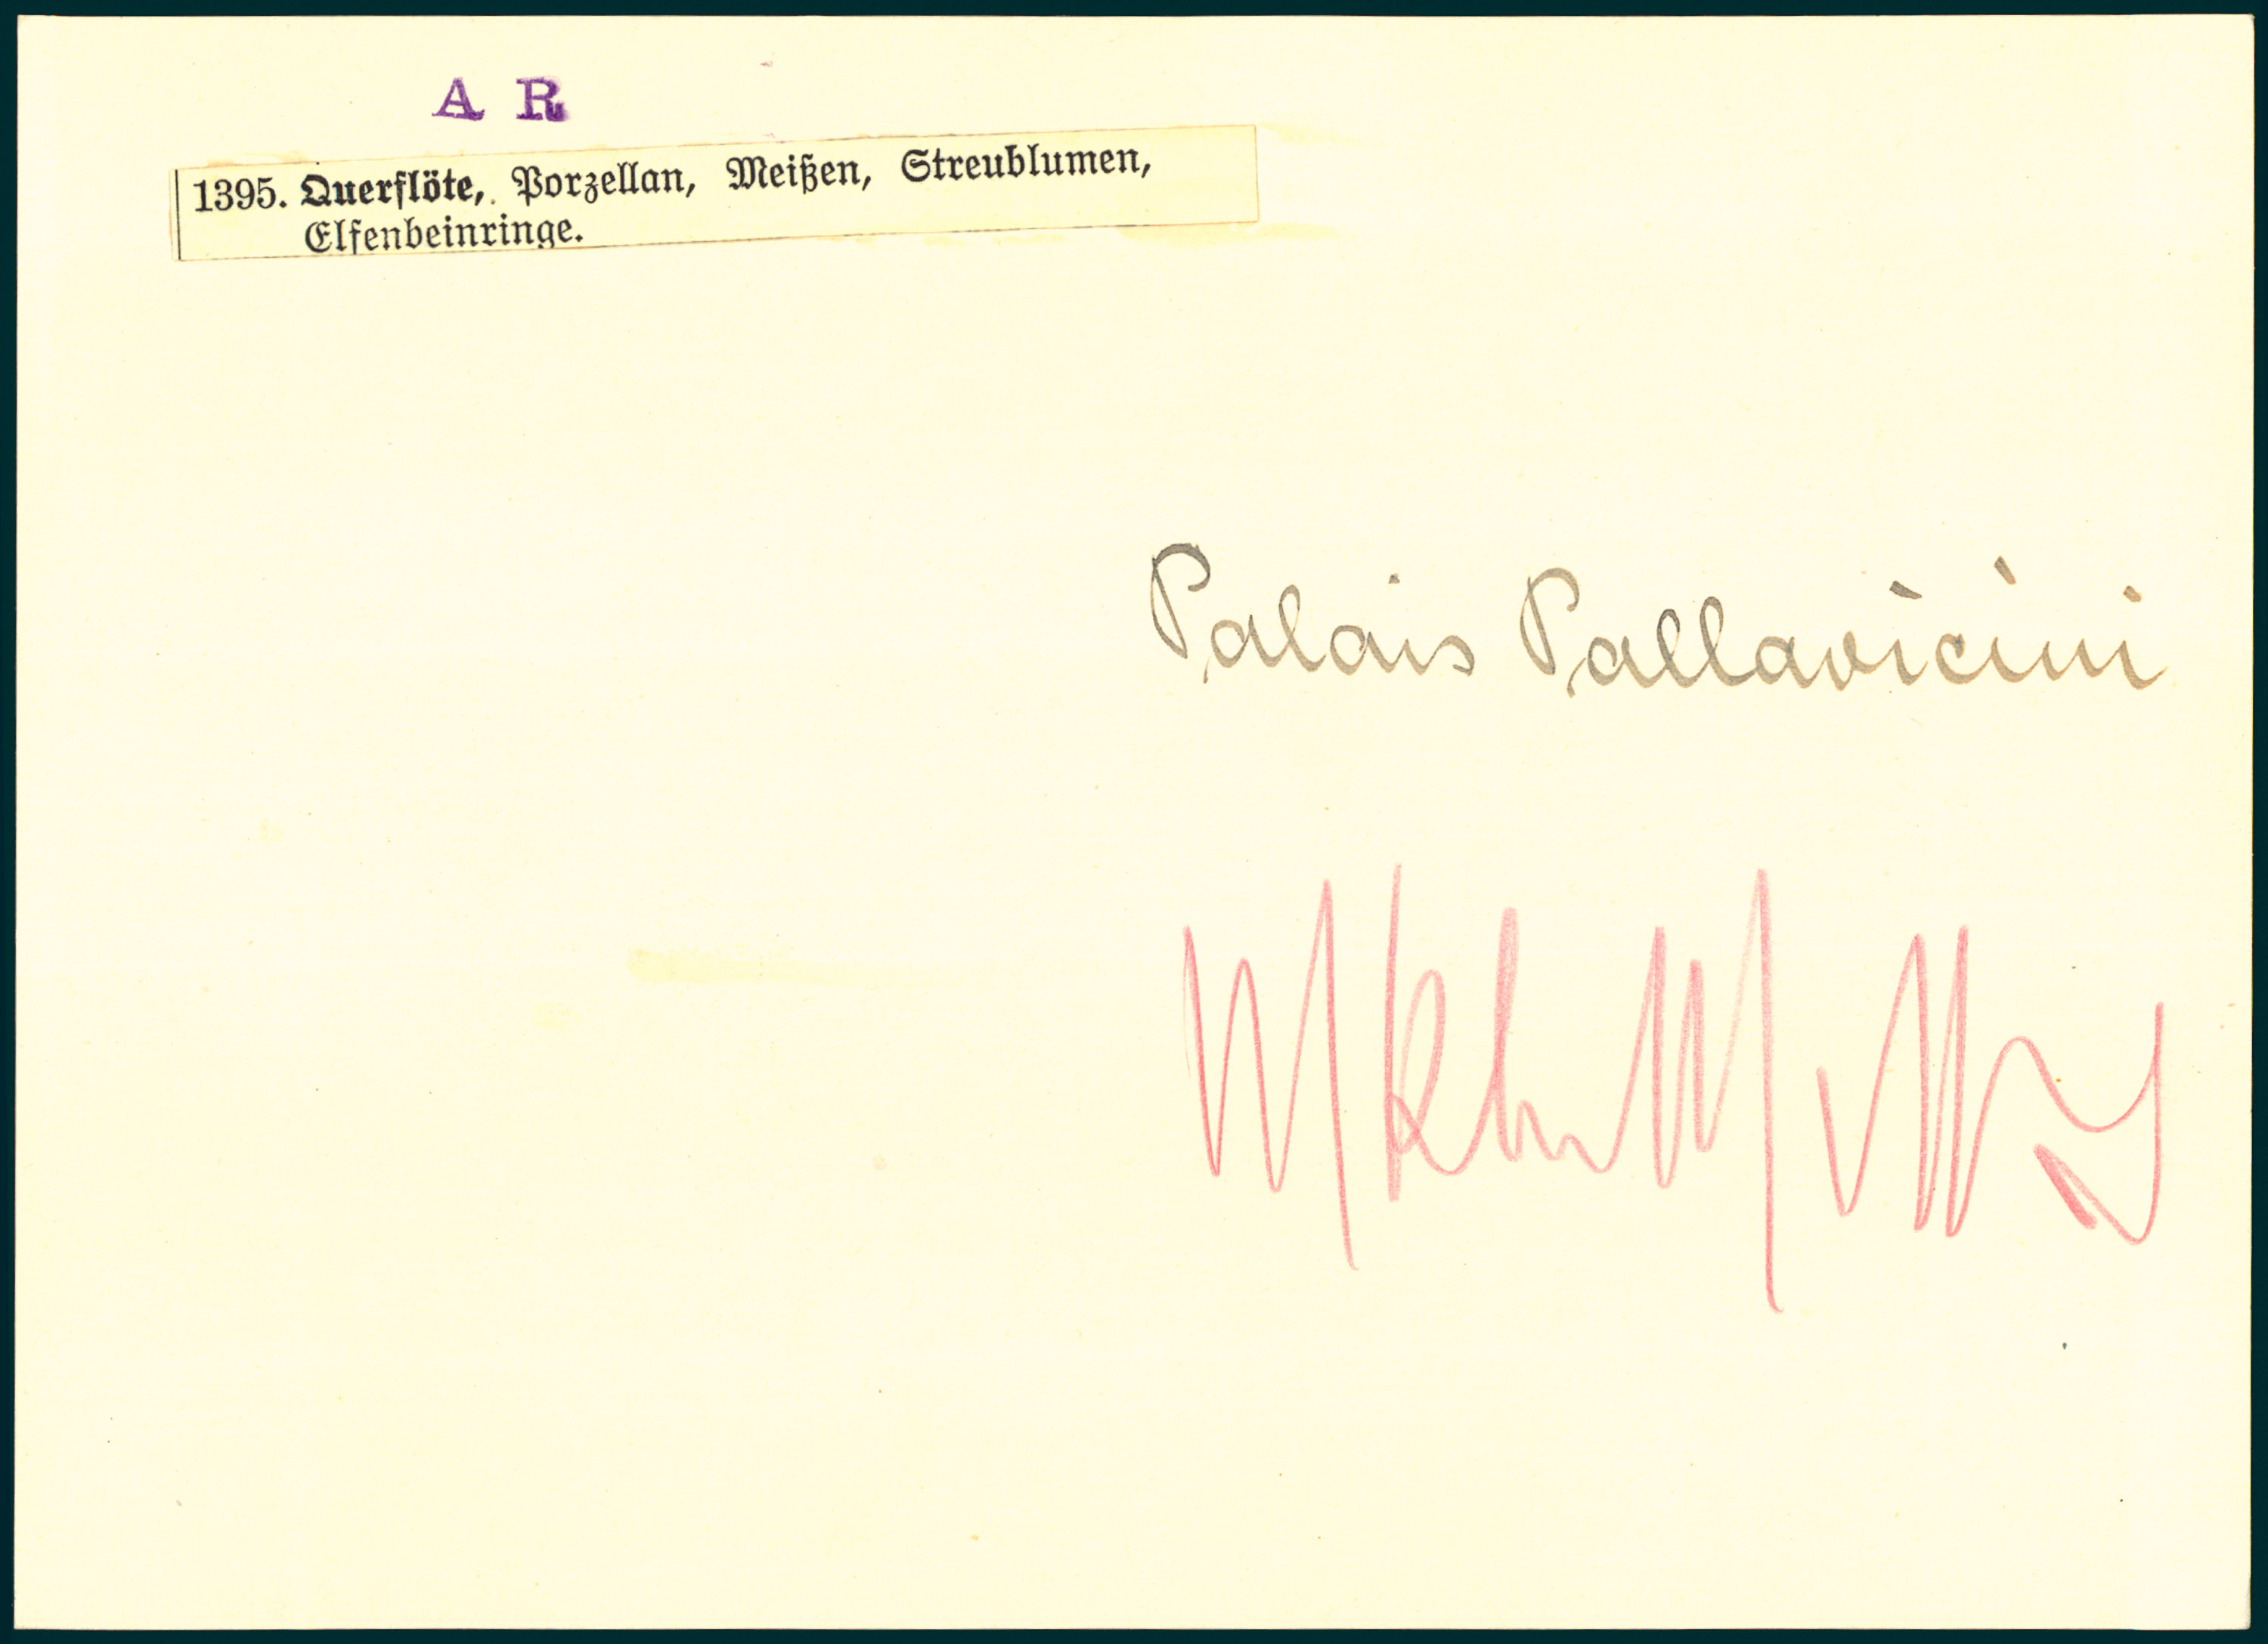 A R
1395. Querflöte, Porzellan, Meißen, Streublumen,
Elfenbeinringe.
Palais Pallavicini